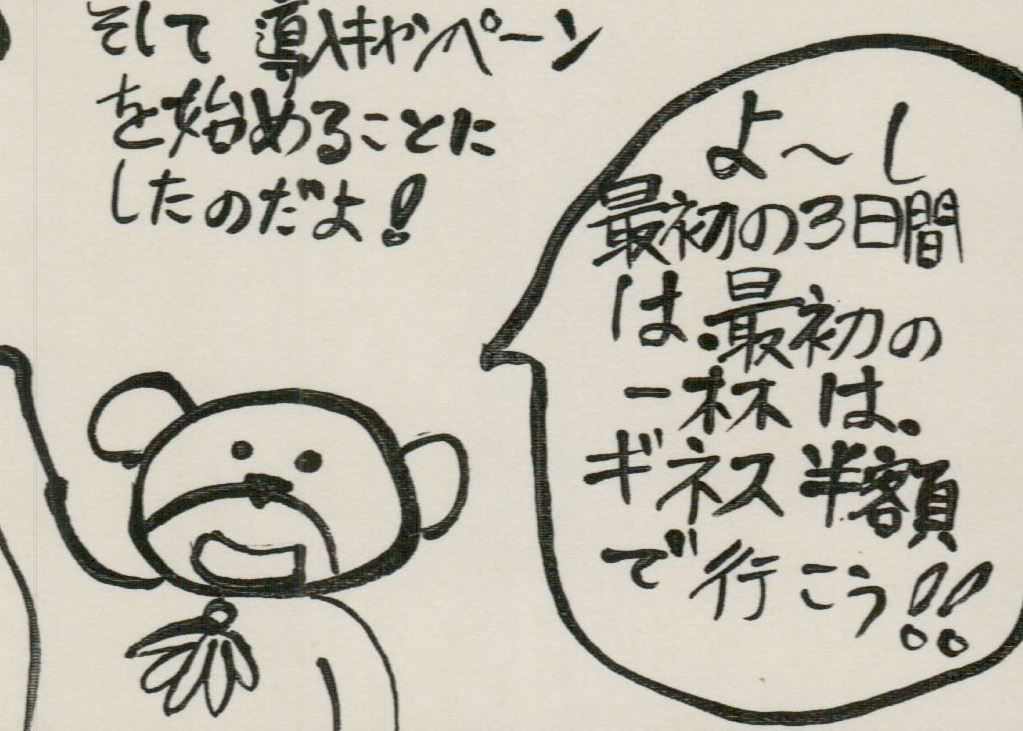 そして 導入キャンペーン
を始めることに
したのだよ!
よ〜し
最初の3日間
は、最初の
一杯は、
ギネス半額
で行こう!!